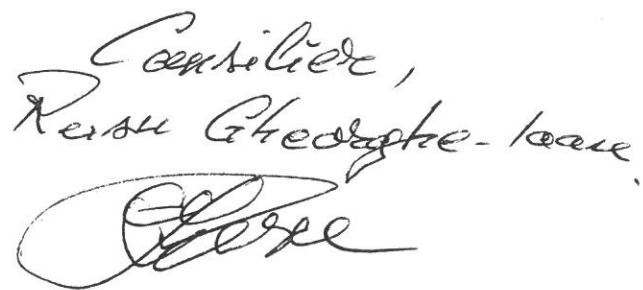 Consilier,
Rusu Gheorghe-Ioan